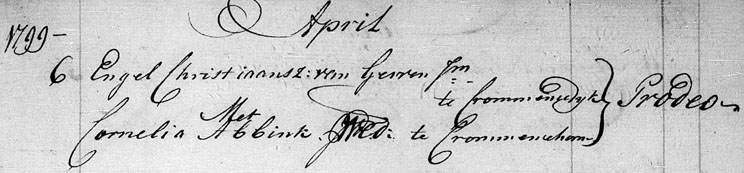 April
1799 –
6 Engel Christiaansz: van Gewen Jm
te Crommenedyk
Met
Cornelia Abbink Wed: te Crommeniehorn
Prodeo